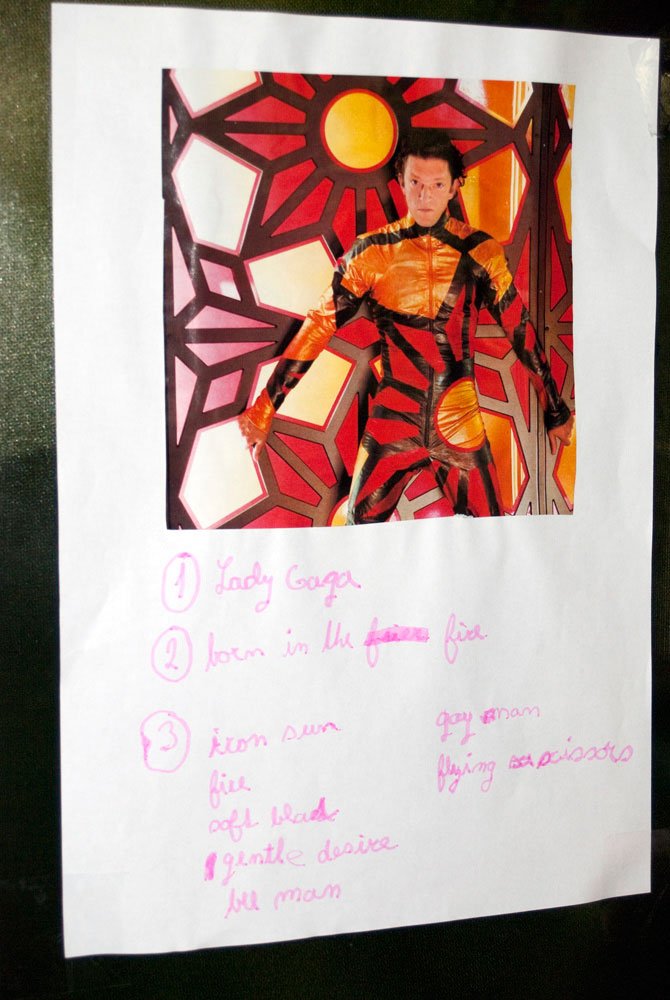 1 Lady Gaga
2 born in the fire
3 iron sun
fire
soft
gentle desire
bee man
gay man
flying scissors